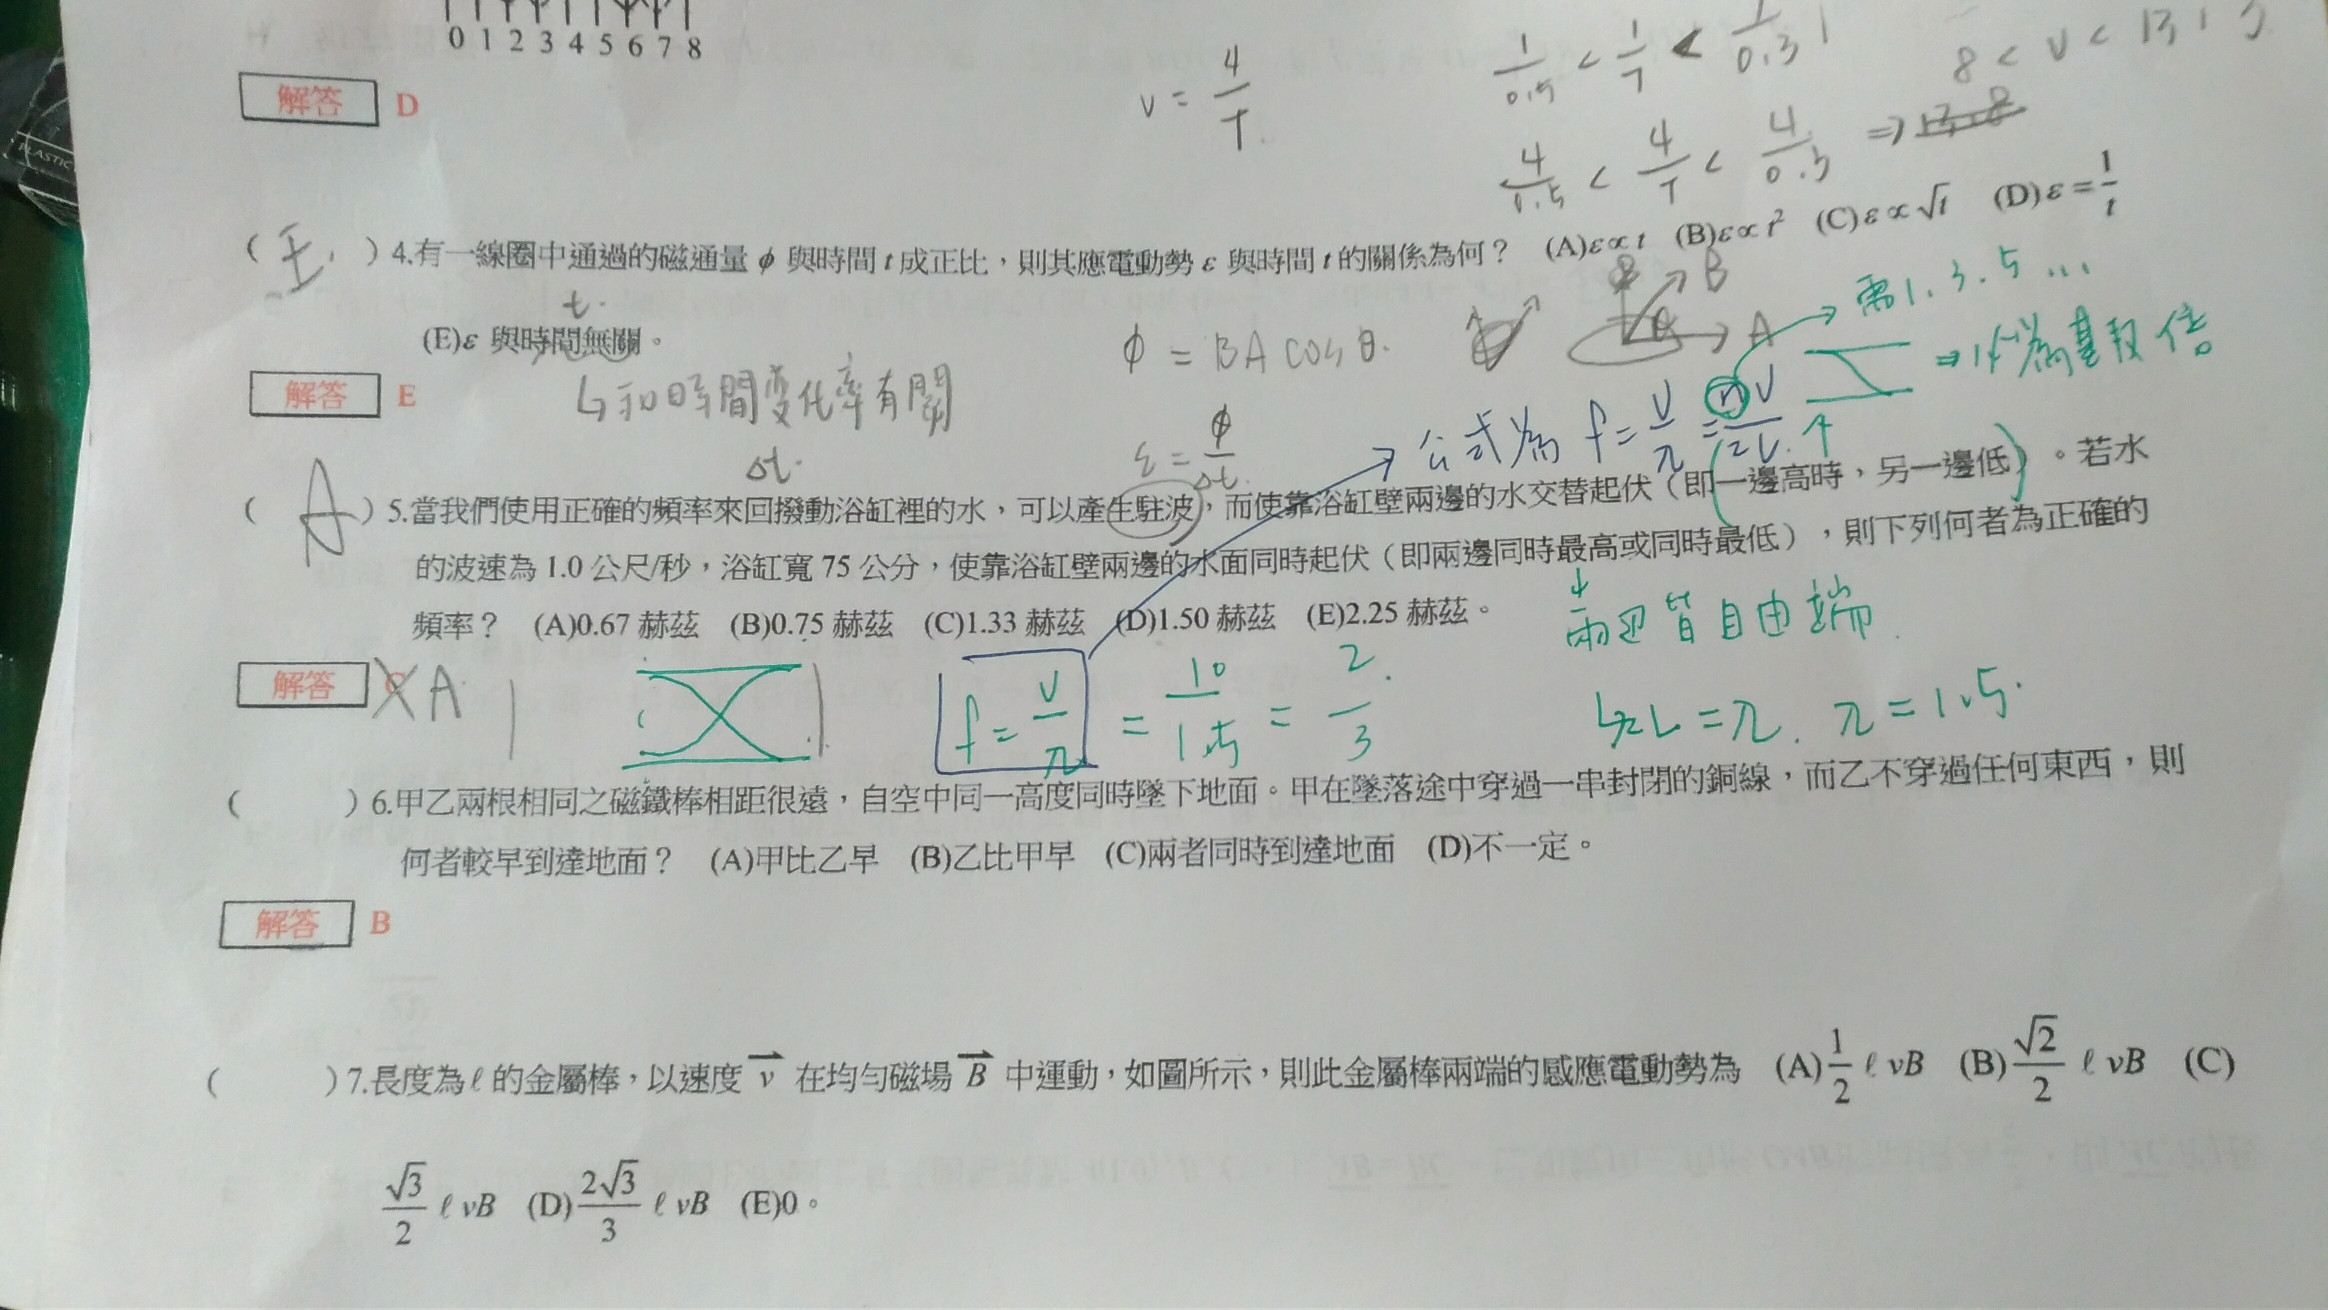 0 1 2 3 4 5 6 7 8
解答 D
v = 4/T
1/0.5 < 1/T < 1/0.3
4/0.5 < 4/T < 4/0.3 ⇒
8 < v < 13.3
PLASTIC
( E. ) 4.有一線圈中通過的磁通量 ϕ 與時間 t 成正比，則其應電動勢 ε 與時間 t 的關係為何？ (A)ε∝t (B)ε∝t² (C)ε∝√t (D)ε=1/t
t.
(E)ε 與時間無關。
ϕ = BA cosθ.
B
θ
A
需1.3.5...
解答 E
↳和時間變化率有關
Δt.
ε = ϕ/Δt.
公式為 f = v/λ = nv/2L
⇒1/2為基數倍
( A ) 5.當我們使用正確的頻率來回撥動浴缸裡的水，可以產生駐波，而使靠浴缸壁兩邊的水交替起伏（即一邊高時，另一邊低）。若水
的波速為 1.0 公尺/秒，浴缸寬 75 公分，使靠浴缸壁兩邊的水面同時起伏（即兩邊同時最高或同時最低），則下列何者為正確的
頻率？ (A)0.67 赫茲 (B)0.75 赫茲 (C)1.33 赫茲 (D)1.50 赫茲 (E)2.25 赫茲。
兩邊皆自由端
解答 C A
f = v/λ = 10/1.5 = 2/3.
↳2L = λ. λ = 1.5.
( ) 6.甲乙兩根相同之磁鐵棒相距很遠，自空中同一高度同時墜下地面。甲在墜落途中穿過一串封閉的銅線，而乙不穿過任何東西，則
何者較早到達地面？ (A)甲比乙早 (B)乙比甲早 (C)兩者同時到達地面 (D)不一定。
解答 B
( ) 7.長度為 ℓ 的金屬棒，以速度 v⃗ 在均勻磁場 B⃗ 中運動，如圖所示，則此金屬棒兩端的感應電動勢為 (A)1/2 ℓ vB (B)√2/2 ℓ vB (C)
√3/2 ℓ vB (D)2√3/3 ℓ vB (E)0。